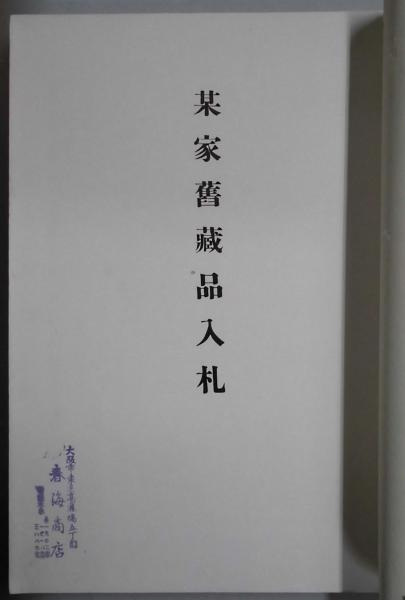 某家舊藏品入札
大阪市東區高麗橋五丁目
春海商店